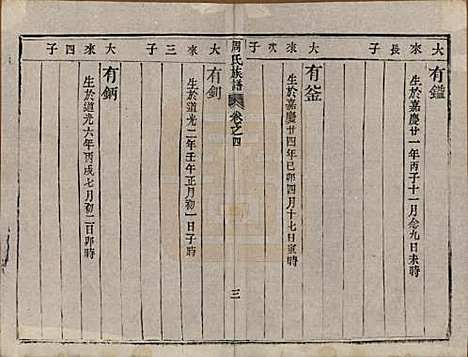 大來長子
有鎰
生於嘉慶廿一年丙子十一月念九日未時
大來次子
有釜
生於嘉慶廿四年己卯四月十七日寅時
周氏族譜
卷之四
三
大來三子
有釗
生於道光二年壬午正月初一日子時
大來四子
有鈵
生於道光六年丙戌七月初二日卯時